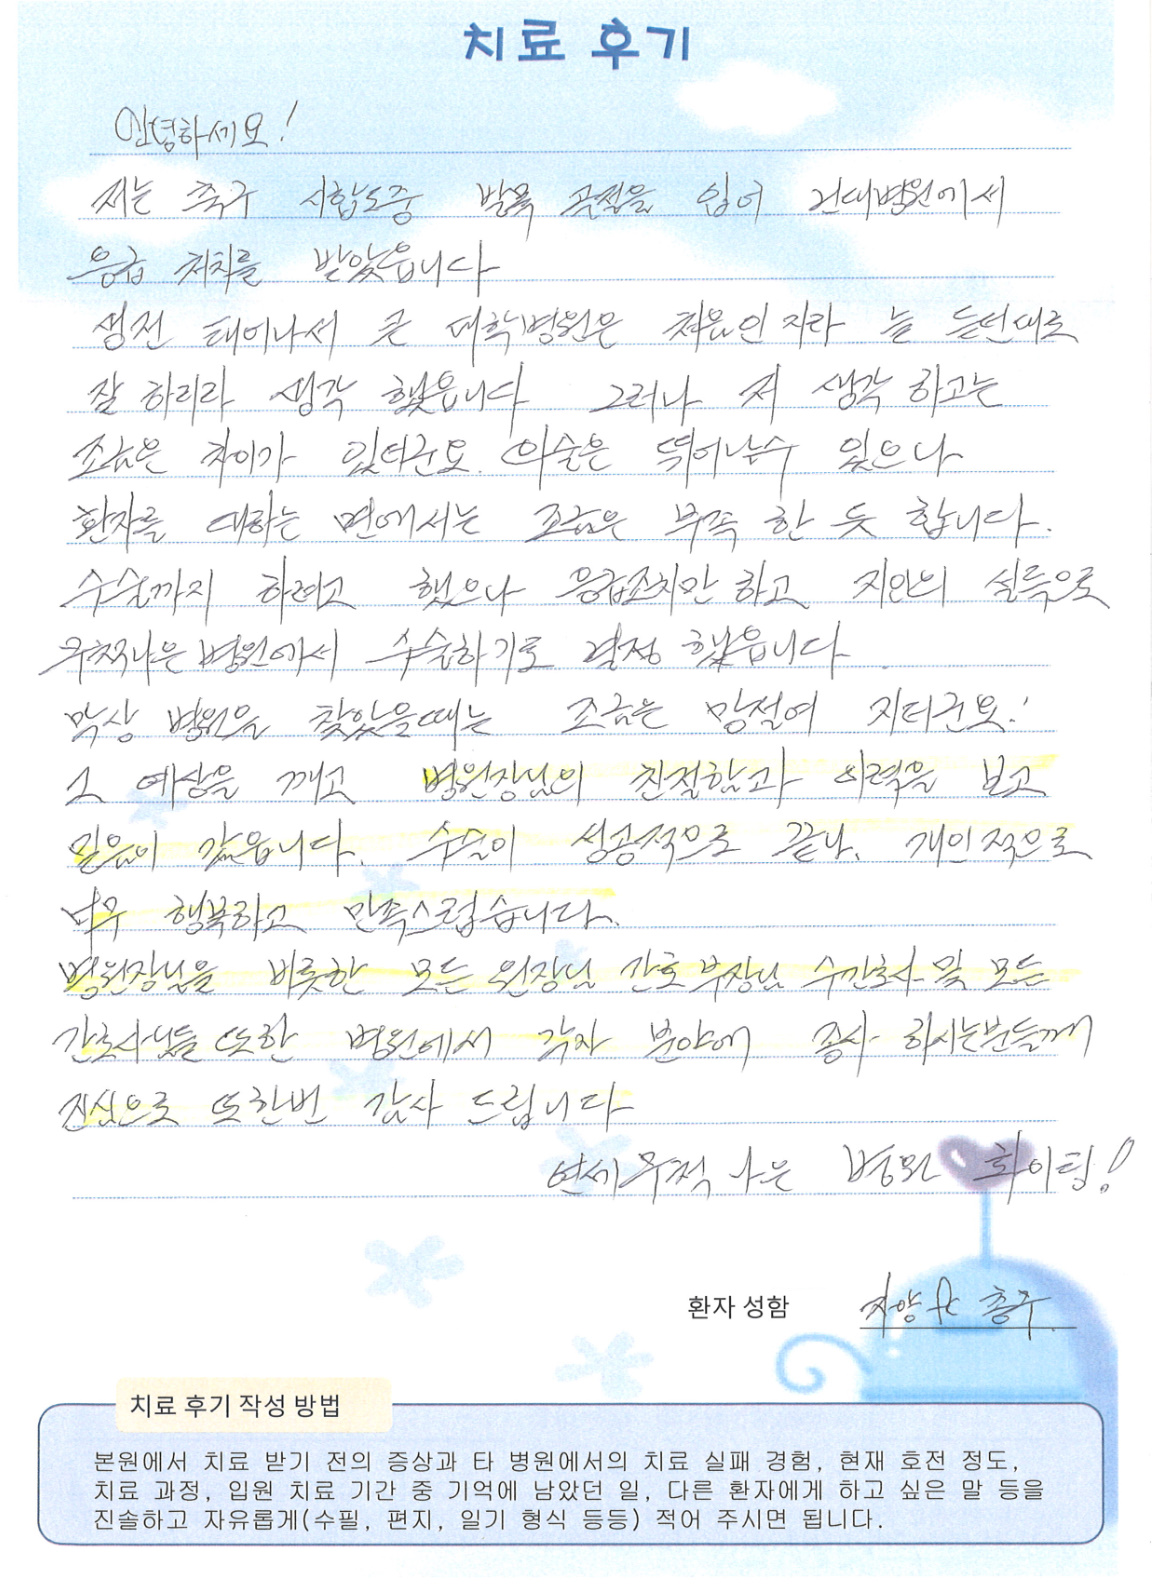 치료 후기
안녕하세요!
저는 축구 시합도중 발목 골절을 입어 건대병원에서
응급 처치를 받았읍니다
생전 태어나서 큰 대학병원은 처음인 자라 늘 듣던대로
잘 하리라 생각 했읍니다 그러나 저 생각 하고는
조금은 차이가 있더군요. 의술은 뛰어날수 있으나
환자를 대하는 면에서는 조금은 부족 한 듯 합니다.
수술까지 하려고 했으나 응급조치만 하고 지인의 설득으로
무척나은 병원에서 수술하기로 결정 했읍니다.
막상 병원을 찾았을때는 조금은 망설여 지더군요!
그 예상을 깨고 병원장님의 친절함과 이력을 보고
믿음이 갔읍니다. 수술이 성공적으로 끝나. 개인적으로
너무 행복하고 만족스럽습니다.
병원장님을 비롯한 모든 원장님 간호부장님 수간호사 및 모든
간호사님들 또한 병원에서 각자 분야에 종사 하시는분들께
진심으로 또한번 감사 드립니다
연세무척 나은 병원 화이팅!
환자 성함 자양 fc 총무.
치료 후기 작성 방법
본원에서 치료 받기 전의 증상과 타 병원에서의 치료 실패 경험, 현재 호전 정도,
치료 과정, 입원 치료 기간 중 기억에 남았던 일, 다른 환자에게 하고 싶은 말 등을
진솔하고 자유롭게(수필, 편지, 일기 형식 등등) 적어 주시면 됩니다.